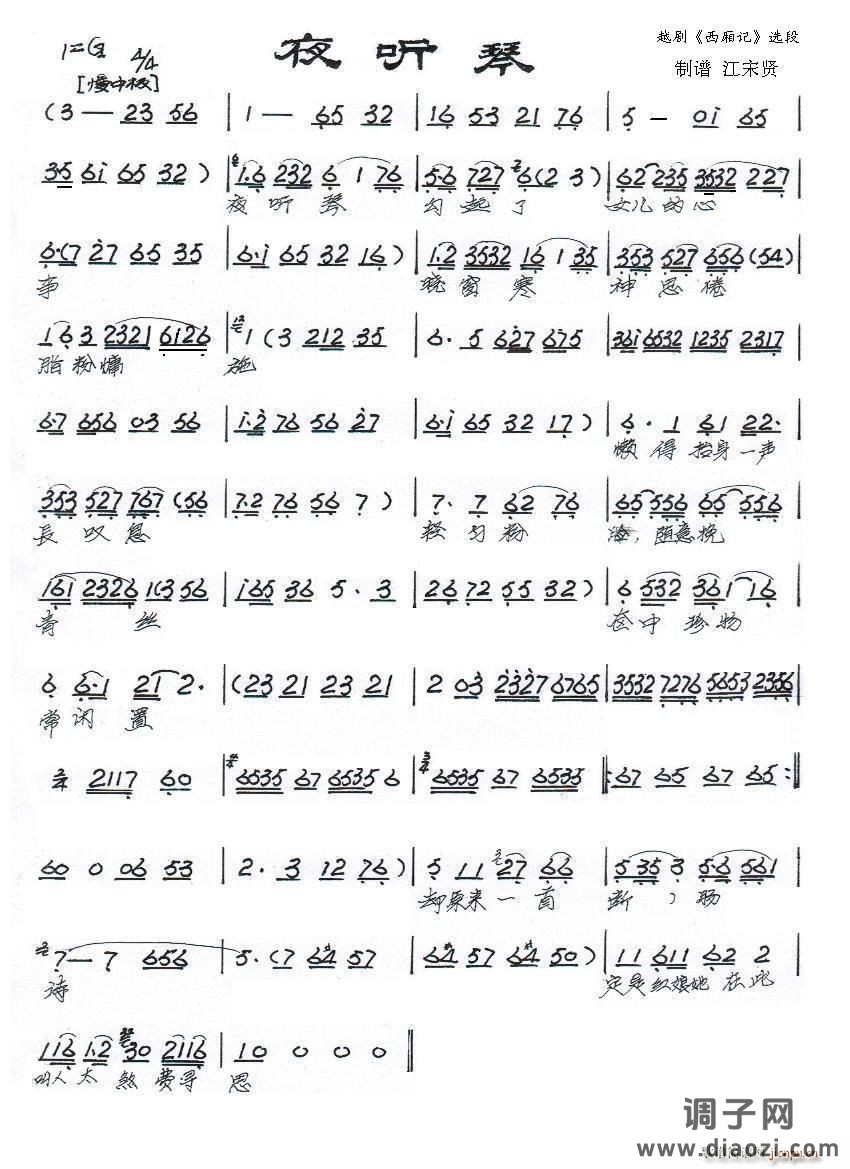 夜听琴
越剧《西厢记》选段
制谱 江宋贤
1=G 4/4
[慢中板]
(3 — 23 56 | 1 — 65 32 | 16 53 21 76 | 5 — 0i 65 |
35 6i 65 32 ) | 1.6 232 6 1 76 | 5.6 727 6(2 3) | 62 235 3532 227 |
夜听琴 勾起了 女儿的心
6.(7 27 65 35 | 6.i 65 32 16 ) | 1.2 3532 16 1 35 | 353 527 656 (54) |
事 晓窗寒 神思倦
1 6 3 2321 6126 | 1 (3 212 35 | 6. 5 627 675 | 36i 6532 1235 2317 |
脂粉慵 施
6.7 656 03 56 | i.2 76 56 27 | 6.i 65 32 17 ) | 6. 1 61 22. |
懒得抬身一声
353 527 767 (56 | 7.2 76 56 7 ) | 7. 7 62 76 | 65 556 65 556 |
長叹息 轻匀粉 随意挽
161 2326 1(3 56 | i65 36 5. 3 | 26 72 55 32 ) | 6 532 361 16 |
青丝 奁中珍物
6 6.1 21 2. | (23 21 23 21 | 2 03 2327 6765 | 3532 7276 5653 2356 |
常闲置
2/4 2117 60 | 4/4 6535 67 6535 6 | 3/4 6535 67 6535 | :67 65 67 65 :||
60 0 06 53 | 2. 3 12 76 ) | 5 11 27 66 | 5 35 3 5.6 561 |
却原来一首 断 肠
7 — 7 656 | 5. (7 64 57 | 64 57 64 50 ) | 11 611 62 2 |
诗 定是红娘她在此
116 1.2 30 2116 | 10 0 0 0 ||
叫人太煞费寻 思
调子网
www.diaozi.com